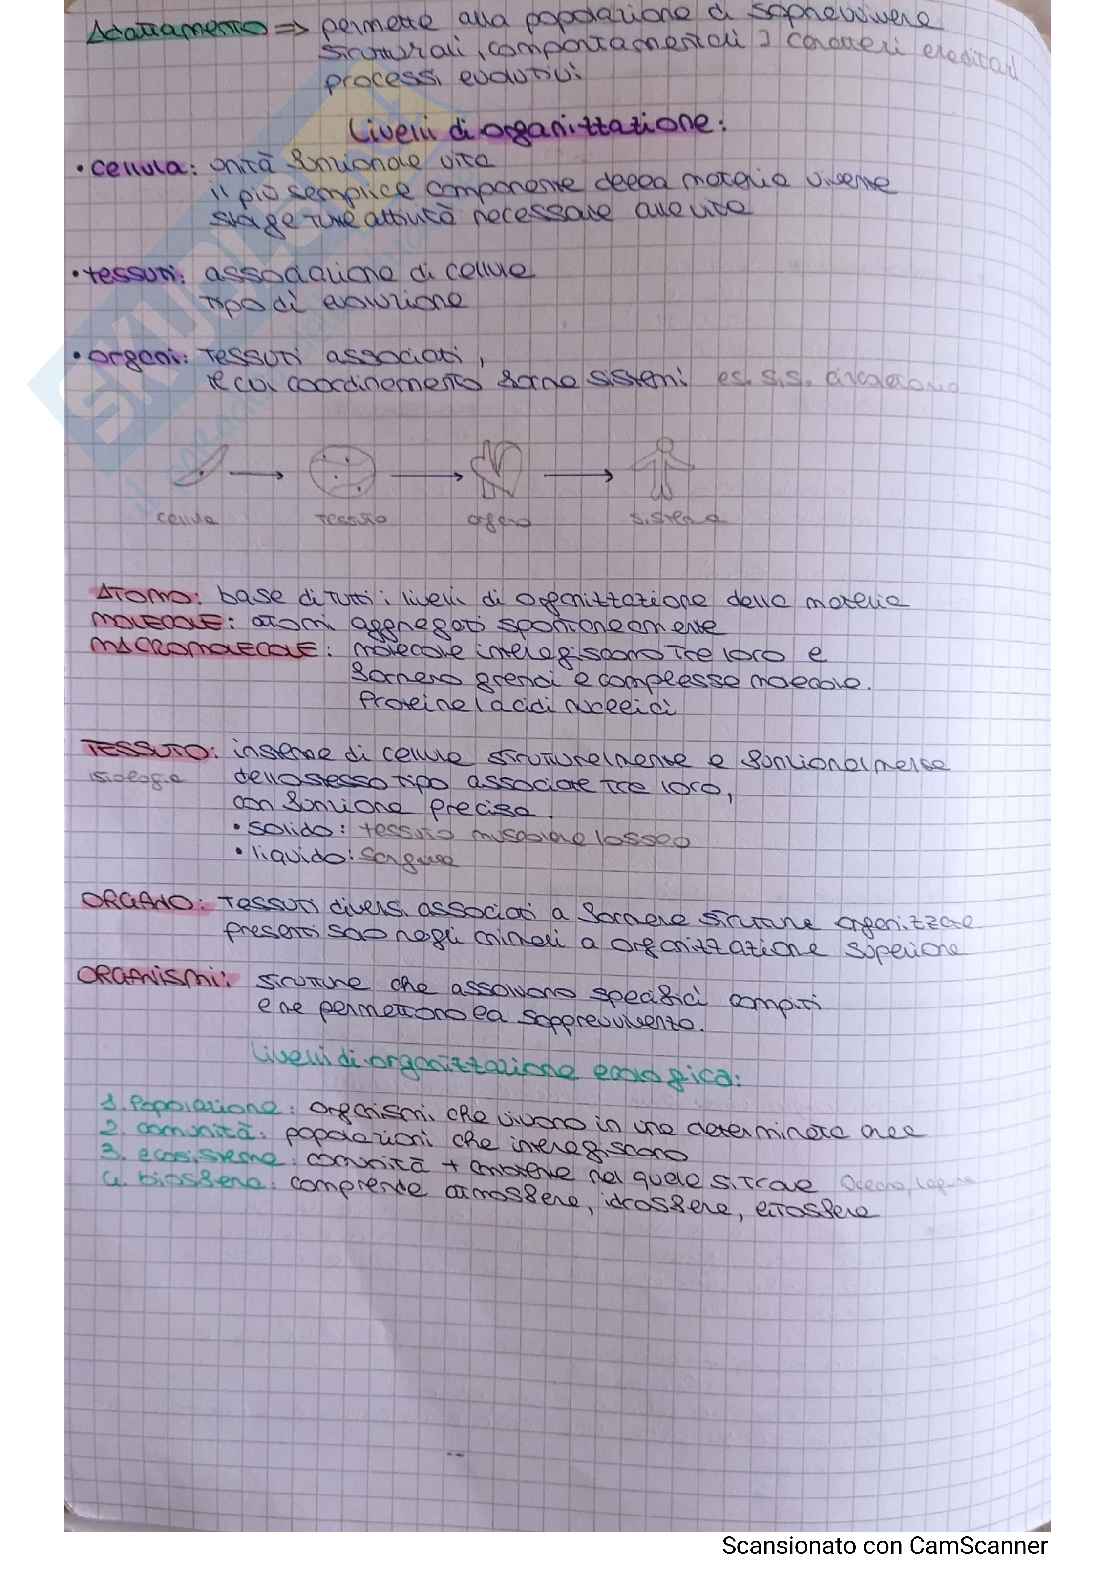 Adattamento => permette alla popolazione di sopravvivere
strutturali, comportamentali ] caratteri ereditari
processi evolutivi
Livelli di organizzazione:
• cellula: unità funzionale vita
il più semplice componente della materia vivente
svolge tutte attività necessarie alla vita
• tessuti: associazione di cellule
tipo di evoluzione
• organi: tessuti associati,
il cui coordinamento forma sistemi es. s.s. circolatorio
cellula tessuto organo sistema
ATOMO: base di tutti i livelli di organizzazione della materia
MOLECOLE: atomi aggregati spontaneamente
MACROMOLECOLE: molecole interagiscono tra loro e
formano grandi e complesse molecole.
Proteine / acidi nucleici
TESSUTO: insieme di cellule strutturalmente e funzionalmente
istologia dello stesso tipo associate tra loro,
con funzione precisa.
• solido: tessuto muscolare / osseo
• liquido: sangue
ORGANO: Tessuti diversi associati a formare strutture organizzate
presenti solo negli animali a organizzazione superiore
ORGANISMI: strutture che assolvono specifici compiti
e ne permettono la sopravvivenza.
Livelli di organizzazione ecologica:
1. Popolazione: organismi che vivono in una determinata area
2. comunità: popolazioni che interagiscono
3. ecosistema: comunità + ambiente nel quale si trova Oceano, laguna
4. biosfera: comprende atmosfera, idrosfera, litosfera
Scansionato con CamScanner